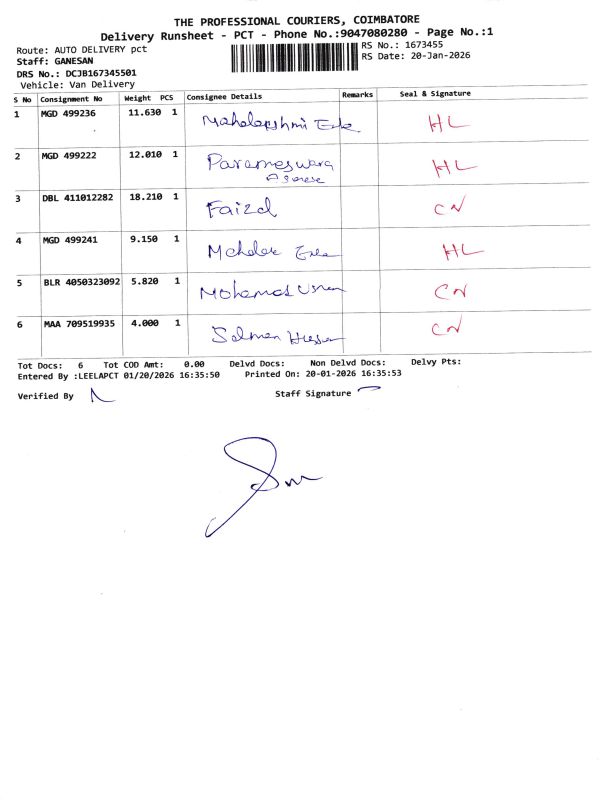 THE PROFESSIONAL COURIERS, COIMBATORE
Delivery Runsheet - PCT - Phone No.:9047080280 - Page No.:1
Route: AUTO DELIVERY pct
RS No.: 1673455
Staff: GANESAN
RS Date: 20-Jan-2026
DRS No.: DCJB167345501
Vehicle: Van Delivery
S No Consignment No Weight PCS Consignee Details Remarks Seal & Signature
1 MGD 499236 11.630 1 HL
2 MGD 499222 12.010 1 Parameswara HL
3 DBL 411012282 18.210 1 Faizal CN
4 MGD 499241 9.150 1 HL
5 BLR 4050323092 5.820 1 CN
6 MAA 709519935 4.000 1 Salman CN
Tot Docs: 6 Tot COD Amt: 0.00 Delvd Docs: Non Delvd Docs: Delvy Pts:
Entered By :LEELAPCT 01/20/2026 16:35:50 Printed On: 20-01-2026 16:35:53
Verified By Staff Signature